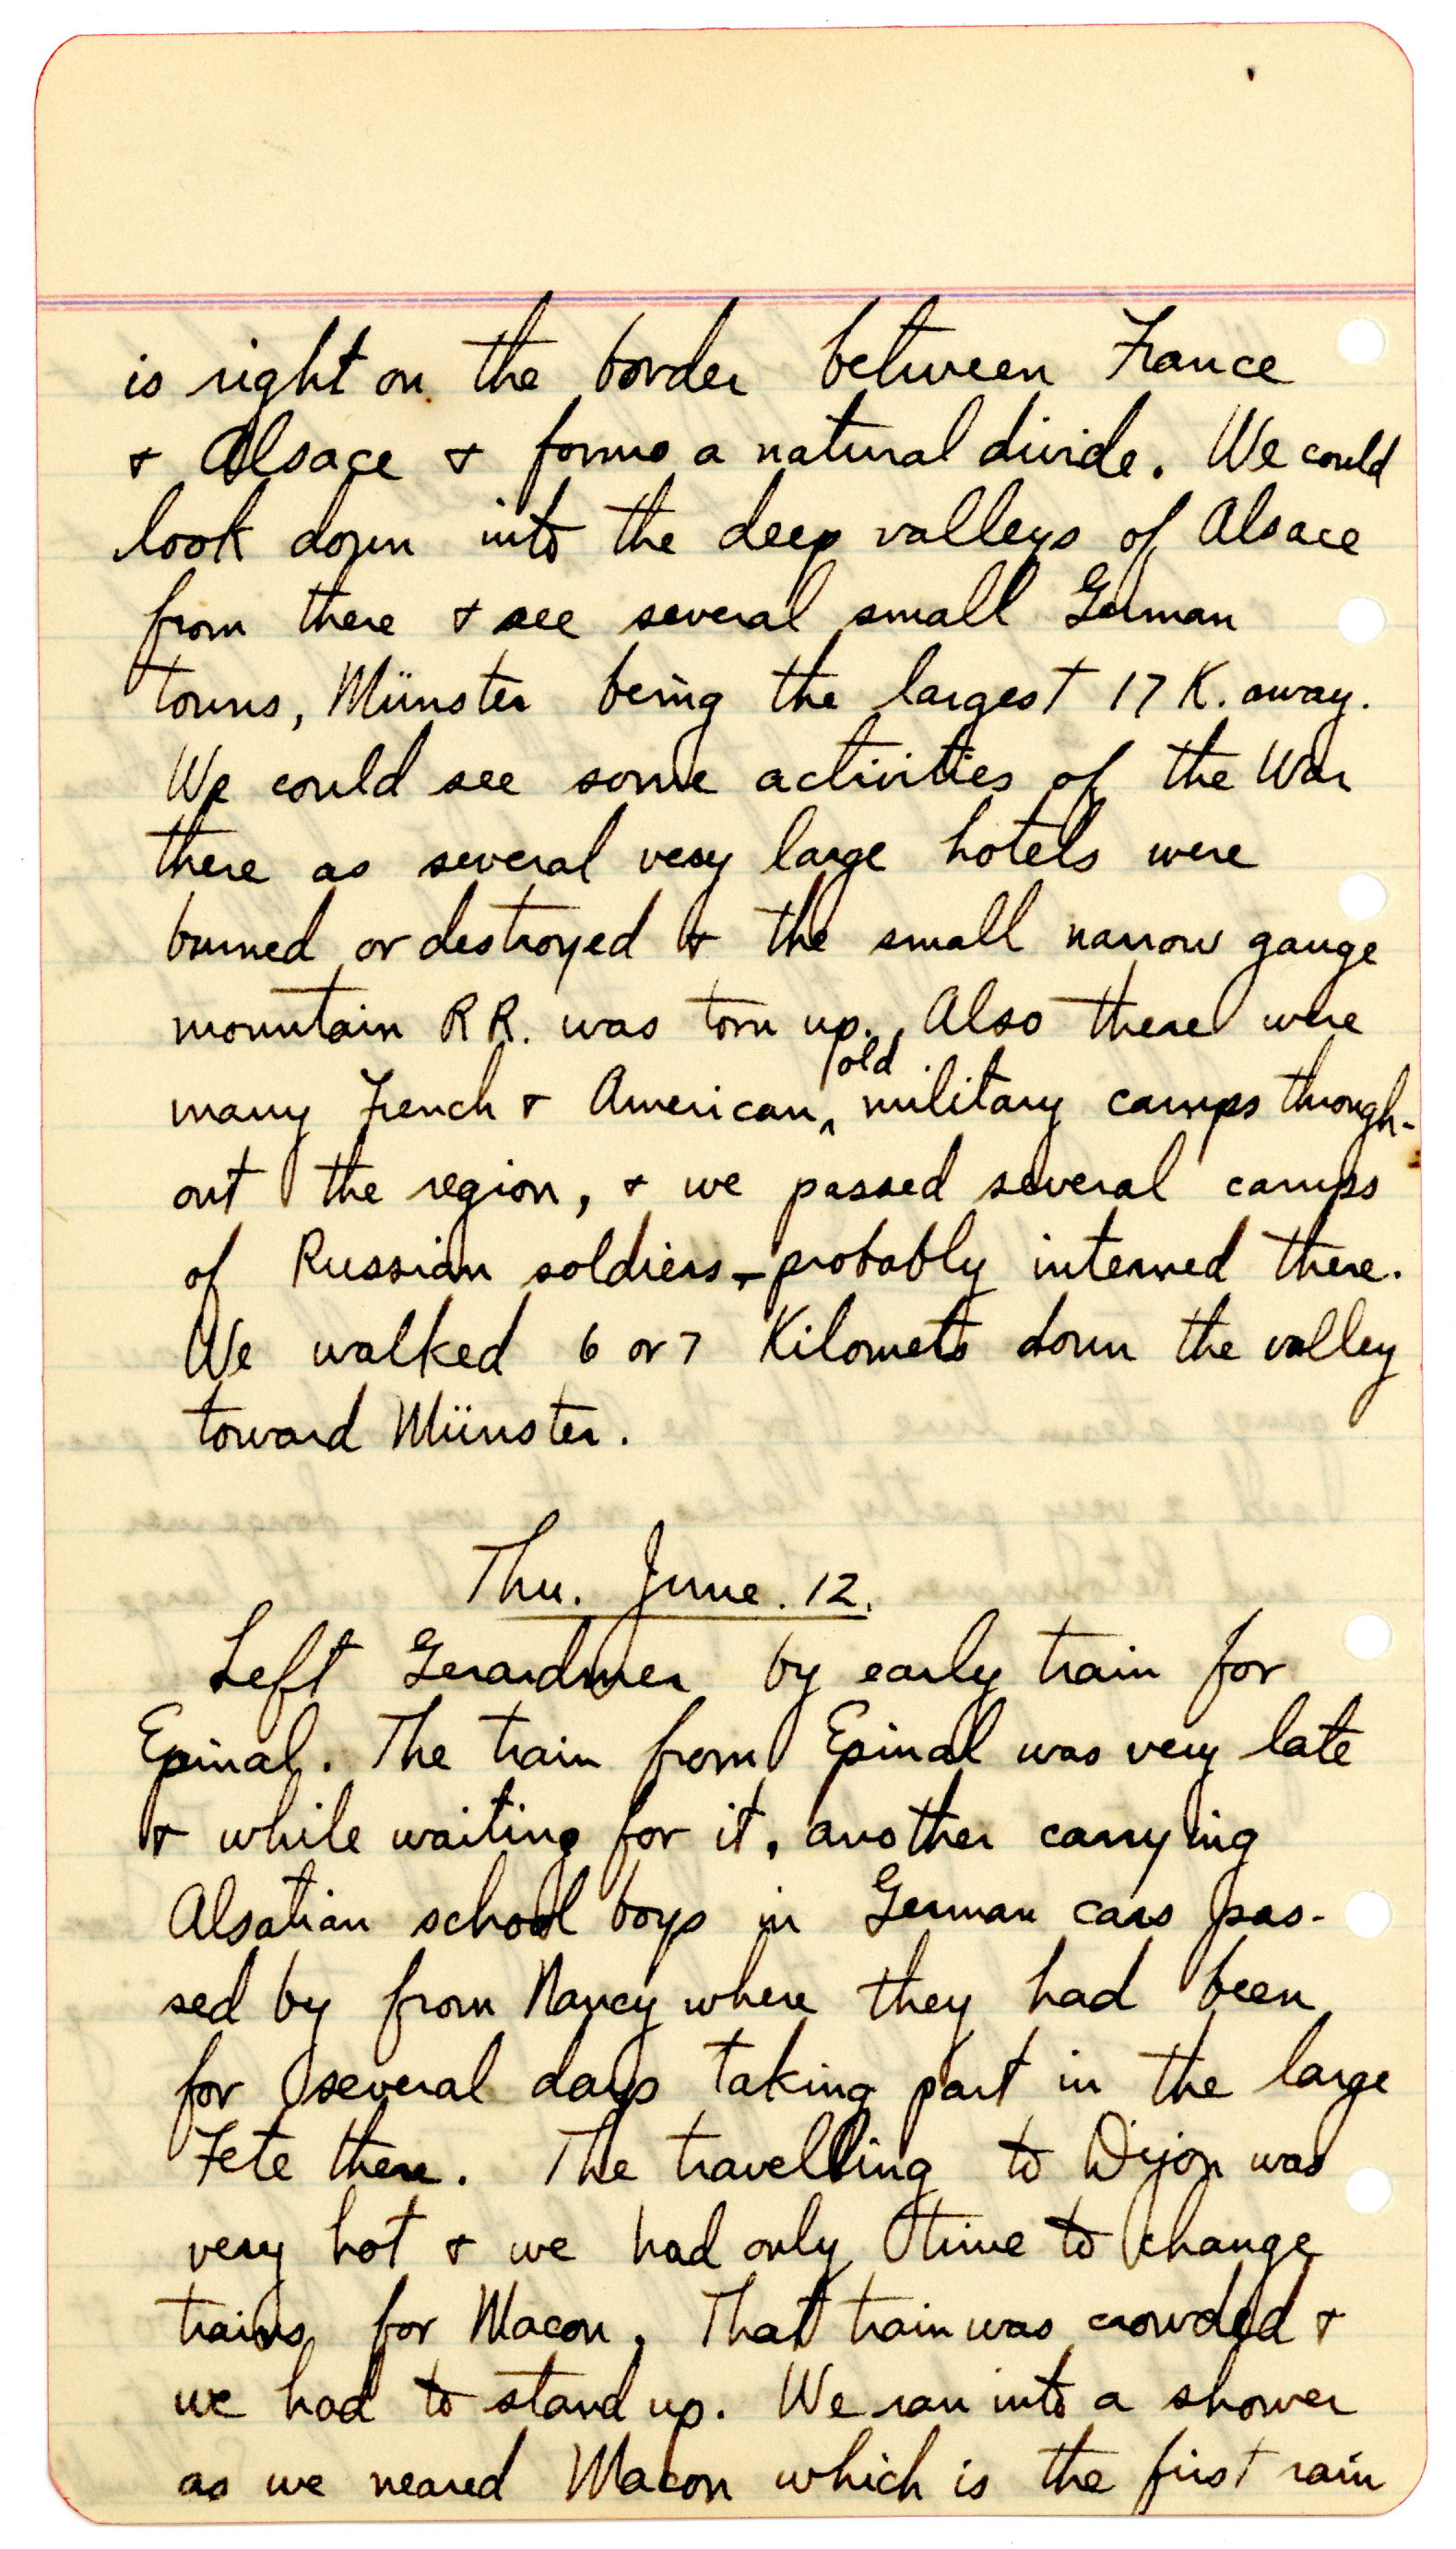 is right on the border between France
& Alsace & forms a natural divide. We could
look down into the deep valleys of Alsace
from there & see several small German
towns, Münster being the largest 17 K. away.
We could see some activities of the War
there as several very large hotels were
burned or destroyed & the small narrow gauge
mountain R R. was torn up. Also there were
old
many French & American, military camps through-
out the region, & we passed several camps
of Russian soldiers - probably interned there.
We walked 6 or 7 Kilomets down the valley
toward Münster.
Thu. June. 12.
Left Gerardmer by early train for
Epinal. The train from Epinal was very late
& while waiting for it, another carrying
Alsatian school boys in German cars pas-
sed by from Nancy where they had been
for several days taking part in the large
Fete there. The travelling to Dijon was
very hot & we had only time to change
trains for Macon. That train was crowded &
we had to stand up. We ran into a shower
as we neared Macon which is the first rain